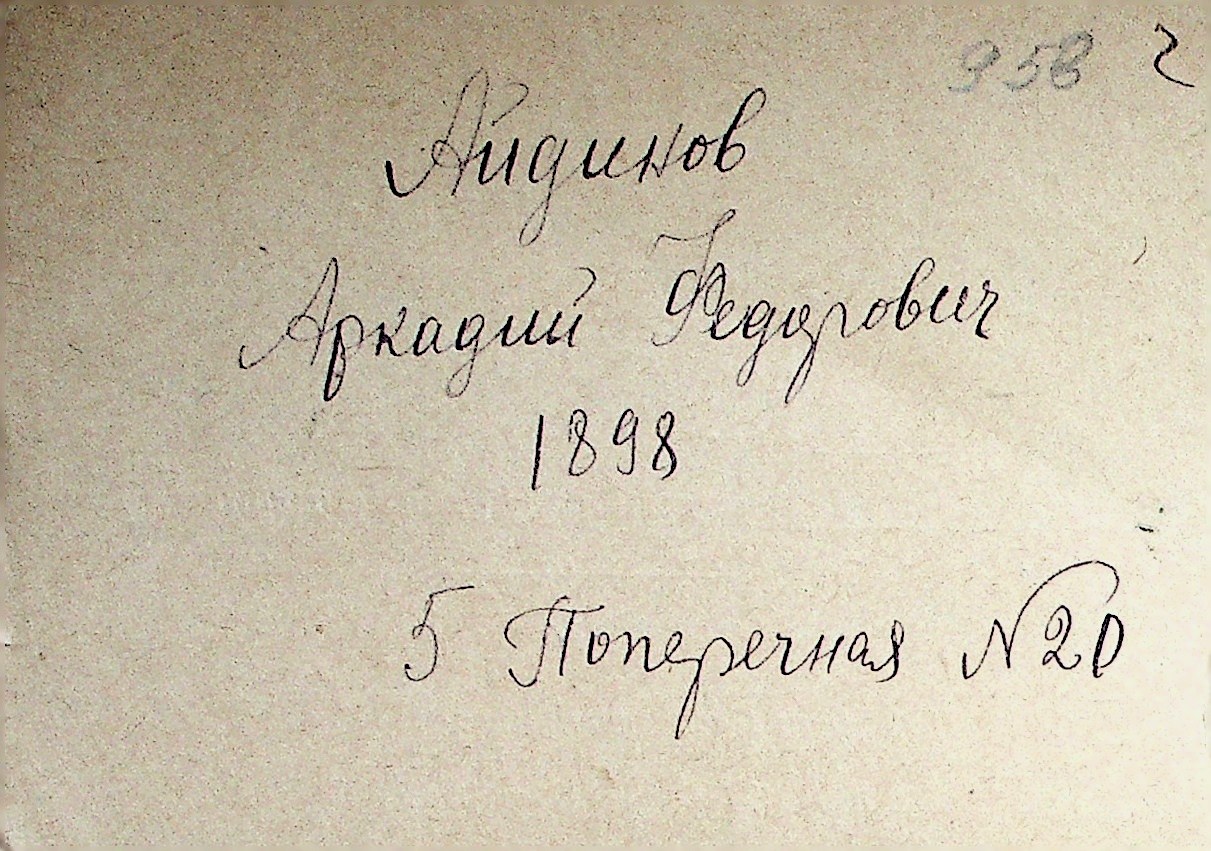 958 2
Айдинов
Аркадий Федорович
1898
5 Поперечная № 20